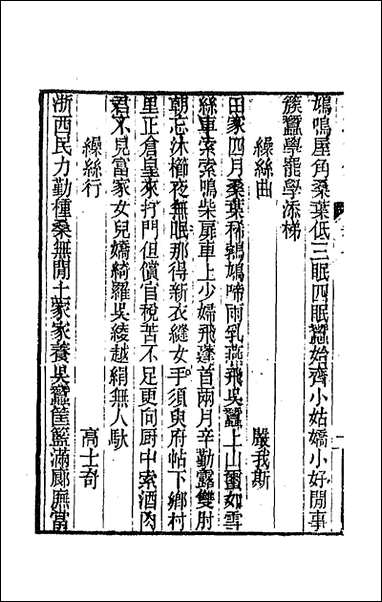 鳩鳴屋角桑葉低三眠四眠蠶始齊小姑嬌小好閒事
簇蠶學罷學添梯
繰絲曲 嚴我斯
田家四月桑葉稀鵓鳩啼雨乳燕飛吳蠶上山蜜如雪
絲車索索鳴柴扉車上少婦飛蓬首兩月辛勤露雙肘
朝忘沐櫛夜無眠那得新衣縫女手須臾府帖下鄉村
里正倉皇來打門但償官稅苦不足更向厨中索酒肉
君不見富家女兒嬌綺羅吳綾越絹無人馱
繰絲行 高士奇
浙西民力勤種桑無閒土家家養吳蠶筐籃滿廊廡當